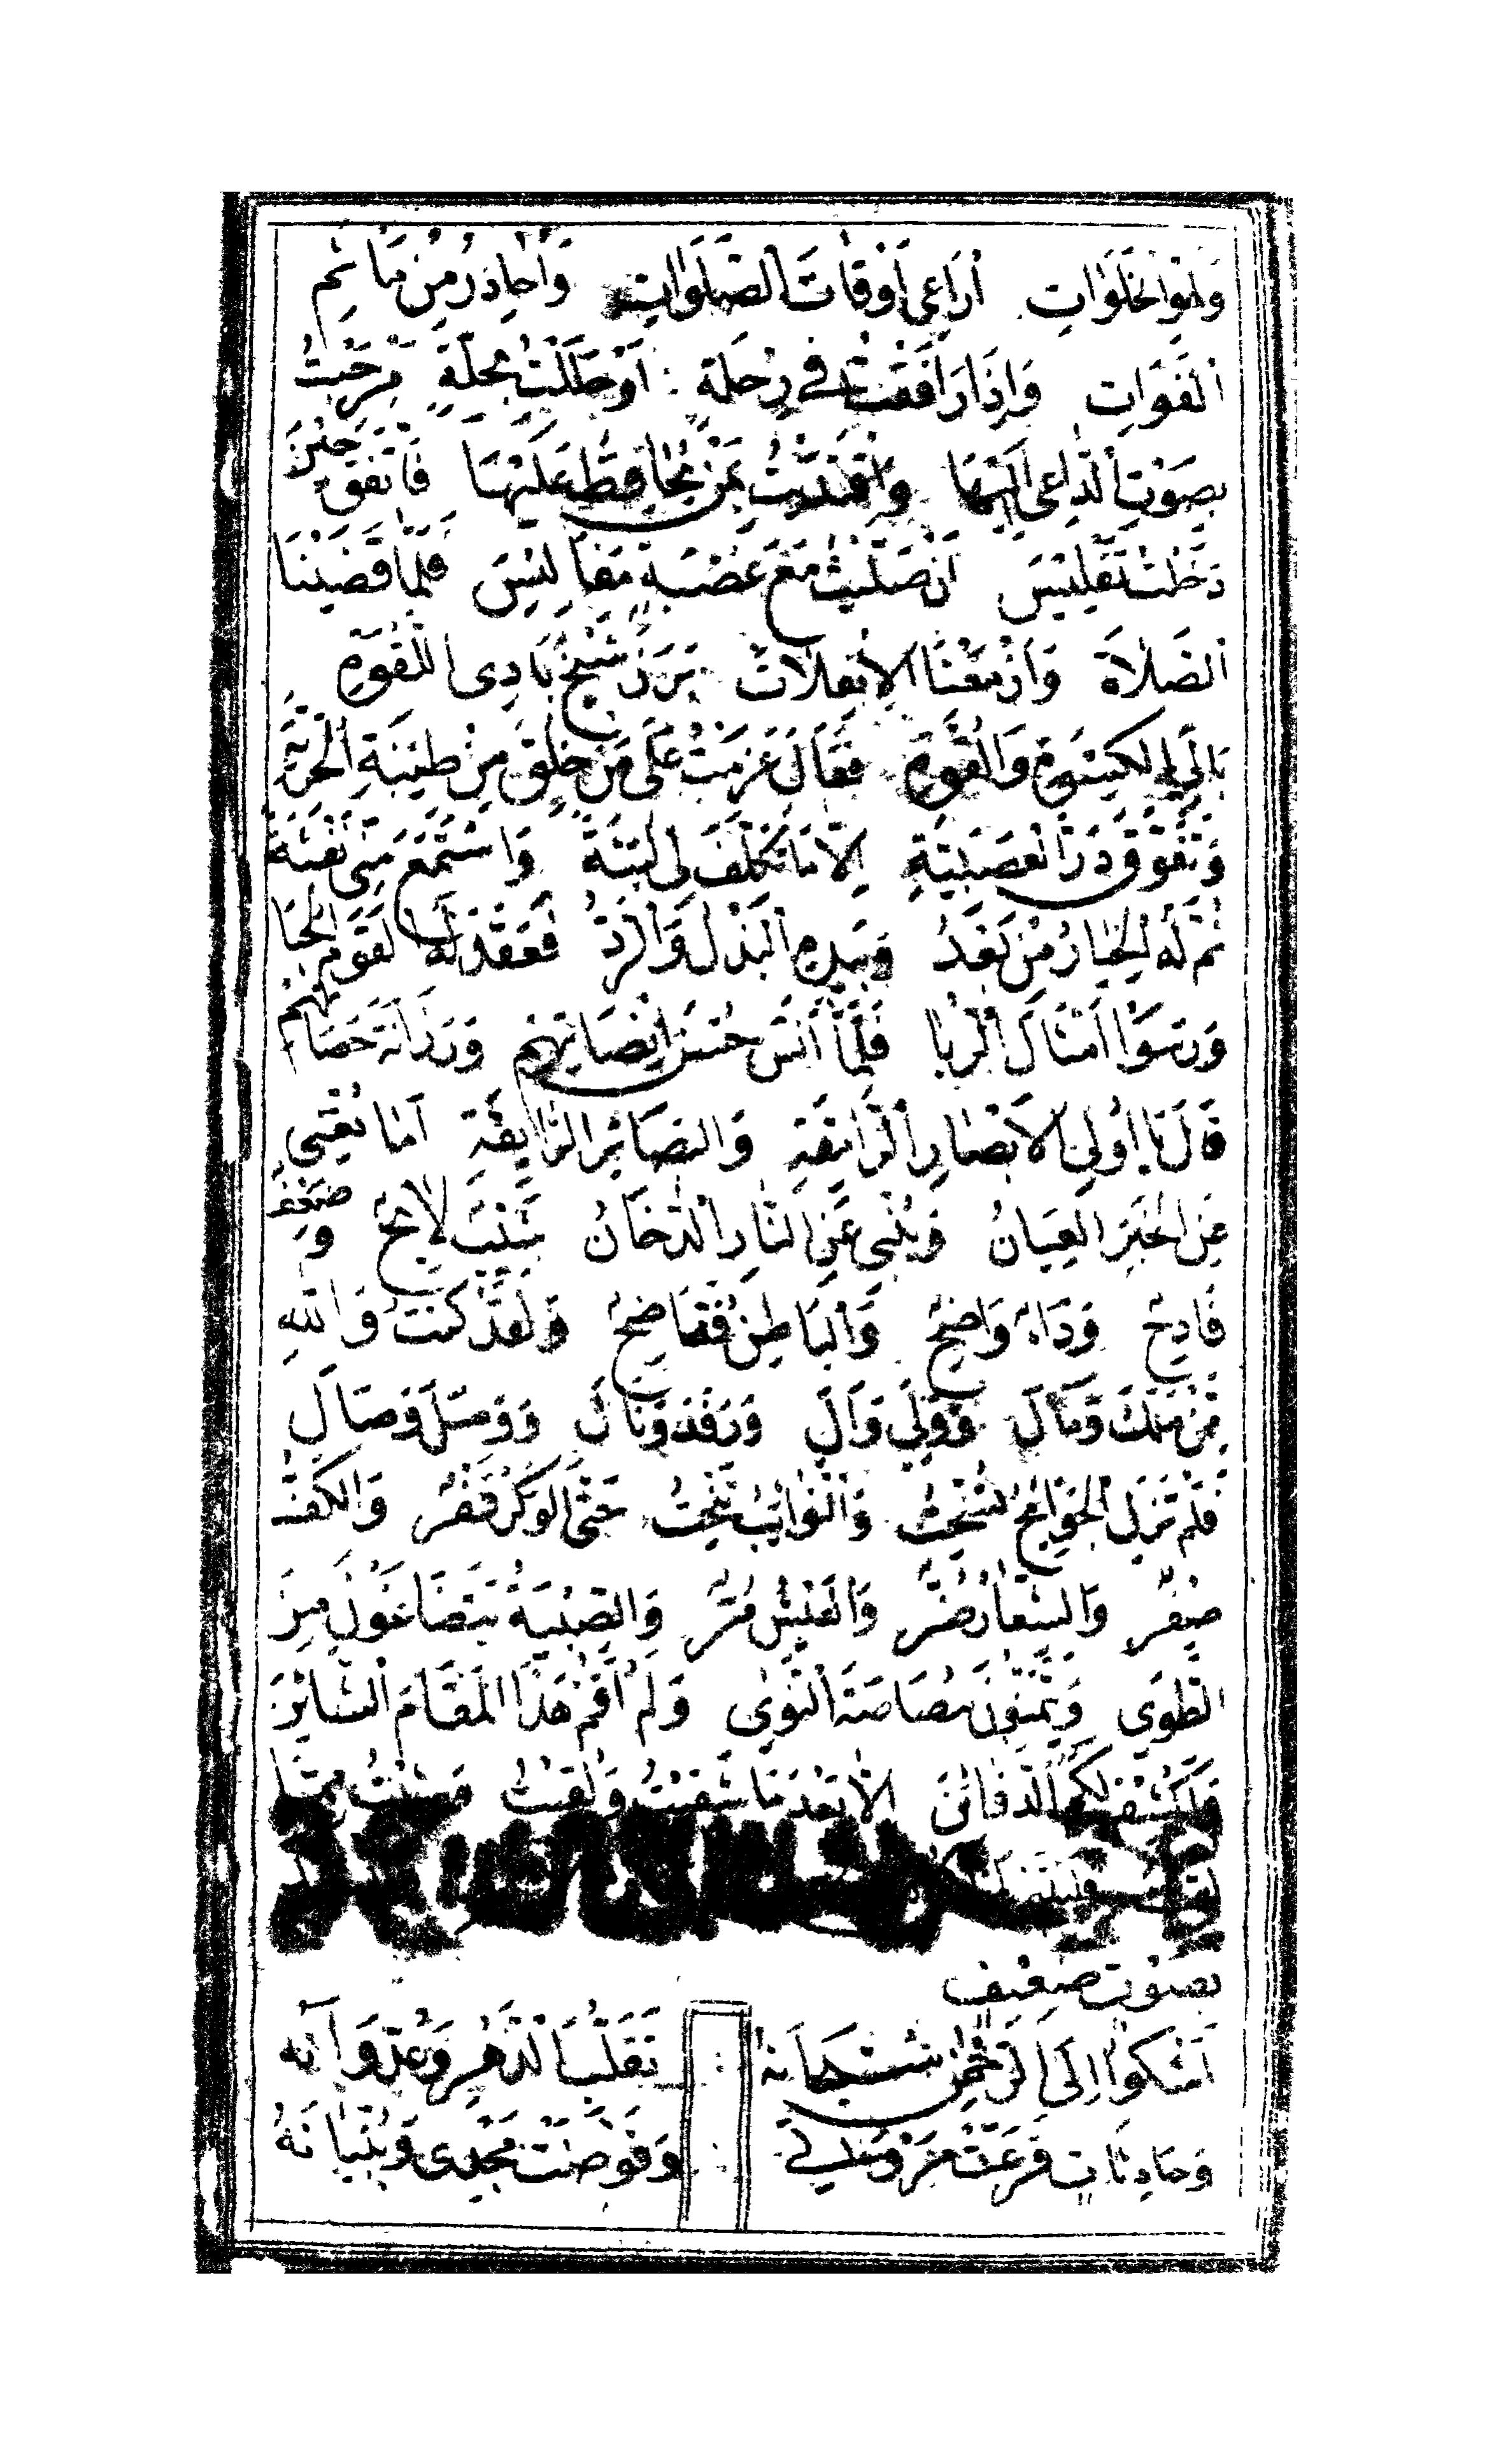 وَلَهْوِ الْخَلَوَاتِ أُرَاعِي أَوْقَاتَ الصَّلَوَاتِ وَأُحَاذِرُ مِنْ مَأْثَمِ
الْفَوَاتِ وَإِذَا رَافَقْتُ فِي رِحْلَةٍ أَوْ حَلَلْتُ بِحِلَّةٍ مَرْحَبْتُ
بِصَوْتِ الدَّاعِي إِلَيْهَا وَاقْتَدَيْتُ بِمَنْ يُحَافِظُ عَلَيْهَا فَاتَّفَقَ حِينَ
دَخَلْتُ تَفْلِيسَ أَنْ صَلَّيْتُ مَعَ عُصْبَةٍ مَفَالِيسَ فَلَمَّا قَضَيْنَا
الصَّلَاةَ وَأَزْمَعْنَا الِانْفِلَاتَ بَرَزَ شَيْخٌ بَادِي اللَّقْوَةِ
بَالِي الْكِسْوَةِ وَالْقُوَّةِ فَقَالَ عَزَمْتُ عَلَى مَنْ خُلِقَ مِنْ طِينَةِ الْحُرِّيَّةِ
وَتَفَوَّقَ دَرَّ الْعَصَبِيَّةِ إِلَّا مَا تَكَلَّفَ لِي لُبْثَةً وَاسْتَمَعَ مِنِّي نَفْثَةً
ثُمَّ لَهُ الْخِيَارُ مِنْ بَعْدُ وَبِيَدِهِ الْبَذْلُ وَالرَّدُّ فَعَقَدَ لَهُ الْقَوْمُ الْحُبَا
وَرَسَوْا أَمْثَالَ الرُّبَا فَلَمَّا آنَسَ حُسْنَ إِنْصَاتِهِمْ وَرَزَانَةَ حَصَاتِهِمْ
قَالَ يَا أُولِي الْأَبْصَارِ الرَّامِقَةِ وَالْبَصَائِرِ الرَّائِقَةِ أَمَا يُغْنِي
عَنِ الْخَبَرِ الْعِيَانُ وَيُنْبِي عَنِ النَّارِ الدُّخَانُ شَيْبٌ لَائِحٌ وَضَعْفٌ
فَادِحٌ وَدَاءٌ وَاضِحٌ وَالْبَاطِنُ فَفَاضِحٌ وَلَقَدْ كُنْتُ وَاللهِ
مِمَّنْ مَلَكَ وَمَالَ وَوَلِيَ وَآلَ وَرَفَدَ وَنَالَ وَوَصَلَ وَصَالَ
فَلَمْ تَزَلِ الْجَوَائِحُ تَسْحَتُ وَالنَّوَائِبُ تَنْحَتُ حَتَّى الْوَكْرُ قَفْرٌ وَالْكَفُّ
صِفْرٌ وَالشِّعَارُ ضُرٌّ وَالْعَيْشُ مُرٌّ وَالصِّبْيَةُ يَتَضَاغَوْنَ مِنَ
الطَّوَى وَيَتَمَنَّوْنَ مُصَاصَةَ النَّوَى وَلَمْ أَقُمْ هَذَا الْمَقَامَ الشَّائِنَ
وَأَكْشِفْ لَكُمُ الدَّفَائِنَ إِلَّا بَعْدَ مَا شَقِيتُ وَلَقِيتُ وَشِبْتُ مِمَّا
بِصَوْتٍ ضَعِيفٍ
أَشْكُو إِلَى الرَّحْمٰنِ سُبْحَانَهُ تَقَلُّبَ الدَّهْرِ وَعُدْوَانَهُ
وَحَادِثَاتٍ قَرَعَتْ مَرْوَتِي وَقَوَّضَتْ مَجْدِي وَبُنْيَانَهُ